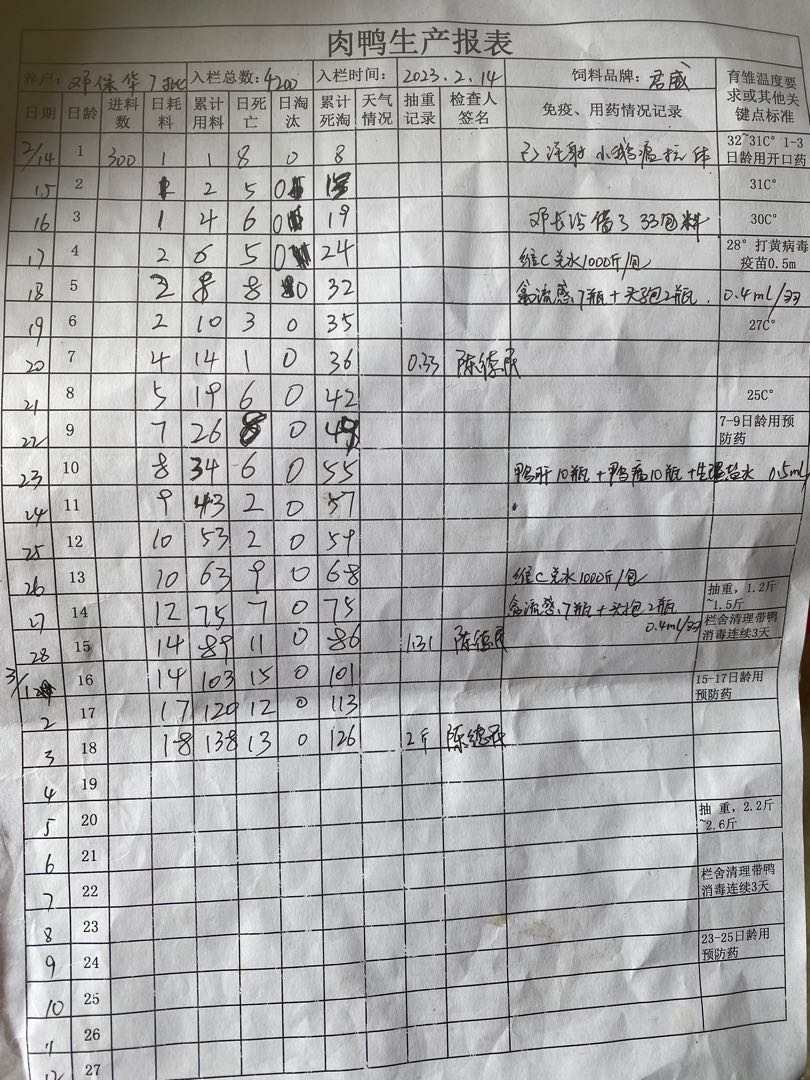 肉鸭生产报表
养户：邓保华7批 入栏总数：4200 入栏时间：2023.2.14 饲料品牌：君威 育雏温度要求或其他关键点标准
日期 日龄 进料数 日耗料 累计用料 日死亡 日淘汰 累计死淘 天气情况 抽重记录 检查人签名 免疫、用药情况记录
2/14 1 300 1 1 8 0 8 已注射小鹅瘟抗体 32~31C° 1-3日龄用开口药
15 2 1 2 5 0 31C°
16 3 1 4 6 0 19 邓长 借了33包料 30C°
17 4 2 6 5 0 24 维C兑水1000斤/包 28° 打黄病毒疫苗0.5m
18 5 2 8 8 0 32 禽流感7瓶+头孢2瓶. 0.4ml/羽
19 6 2 10 3 0 35 27C°
20 7 4 14 1 0 36 0.33 陈德民
21 8 5 19 6 0 42 25C°
22 9 7 26 8 0 49 7-9日龄用预防药
23 10 8 34 6 0 55 鸭肝10瓶+鸭病10瓶+生理盐水 0.5ml
24 11 9 43 2 0 57
25 12 10 53 2 0 59
26 13 10 63 9 0 68 维C兑水1000斤/包
27 14 12 75 7 0 75 禽流感7瓶+头孢2瓶 0.4ml/羽 抽重，1.2斤~1.5斤
28 15 14 89 11 0 86 1.31 陈德民 栏舍清理带鸭消毒连续3天
3/1 16 14 103 15 0 101 15-17日龄用预防药
2 17 17 120 12 0 113
3 18 18 138 13 0 126 2斤 陈德民
4 19
5 20 抽 重，2.2斤~2.6斤
6 21
7 22 栏舍清理带鸭消毒连续3天
8 23
9 24 23-25日龄用预防药
10 25
11 26
12 27